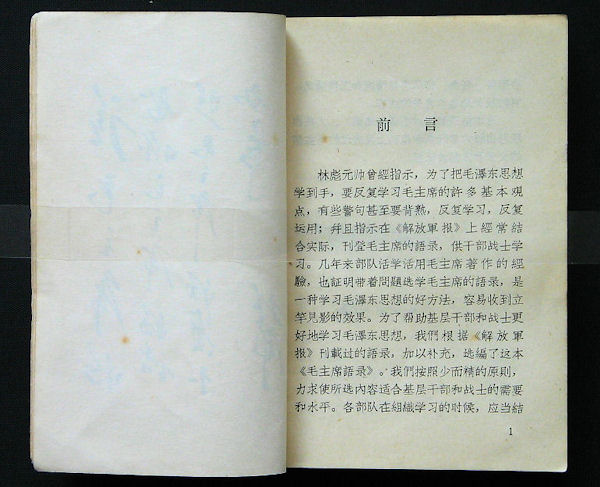 前言
林彪元帅曾經指示，为了把毛澤东思想
学到手，要反复学习毛主席的許多基本观
点，有些警句甚至要背熟，反复学习，反复
运用；幷且指示在《解放軍报》上經常結
合实际，刊登毛主席的語录，供干部战士学
习。几年来部队活学活用毛主席著作的經
驗，也証明带着問題选学毛主席的語录，是
一种学习毛澤东思想的好方法，容易收到立
竿見影的效果。为了帮助基层干部和战士更
好地学习毛澤东思想，我們根据《解放軍
报》刊載过的語录，加以补充，选編了这本
《毛主席語录》。我們按照少而精的原則，
力求使所选內容适合基层干部和战士的需要
和水平。各部队在組織学习的时候，应当結
1